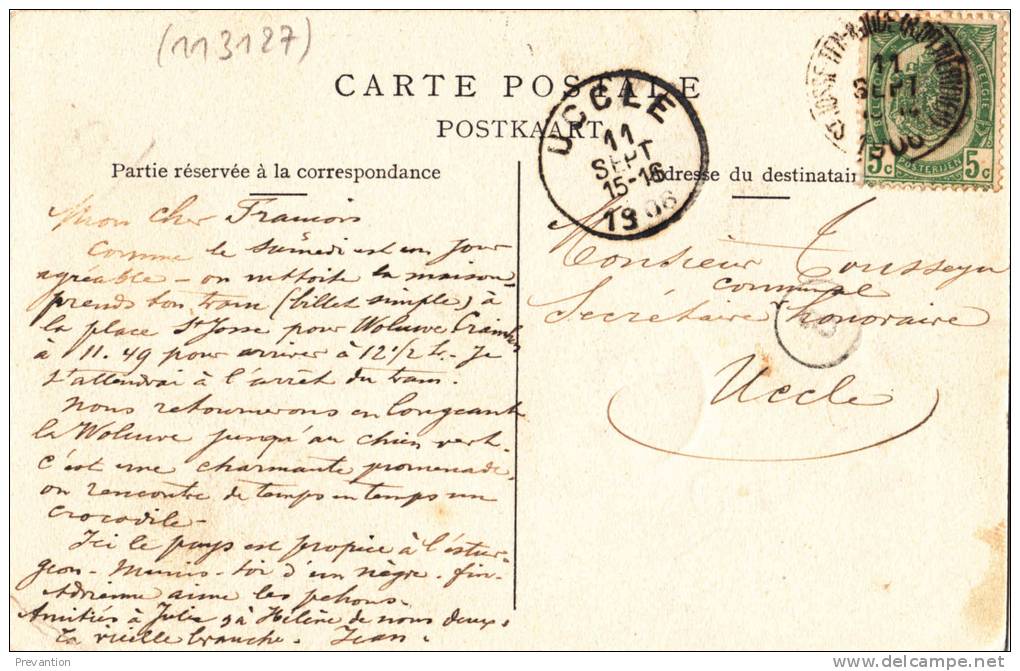 (113127)
CARTE POSTALE
POSTKAART
Partie réservée à la correspondance
Adresse du destinatair
UCCLE
11
SEPT
15-16
1906
11
SEPT
1906
BELGIQUE
BELGIE
POSTERIJEN
5c 5c
Mon cher Francois
Comme le samedi est un jour
agréable - on nettoie la maison,
prends ton tram (billet simple) à
la place St Josse pour Woluwe
à 11.49 pour arriver à 12 1/2 h. Je
t'attendrai à l'arrêt du tram.
Nous retournerons en longeant
la Woluwe jusqu'au chien vert.
C'est une charmante promenade,
on rencontre de temps en temps un
crocodile -
Ici le pays est propice à l'estur-
geon - Munis-toi d'un nègre. fin -
Adrienne aime les
Amitiés à Julia & à Hélène de nous deux.
Ta vieille branche. Jean.
Monsieur Tousseyn
communal
Secrétaire honoraire
Uccle
Prevantion
www.delcampe.net